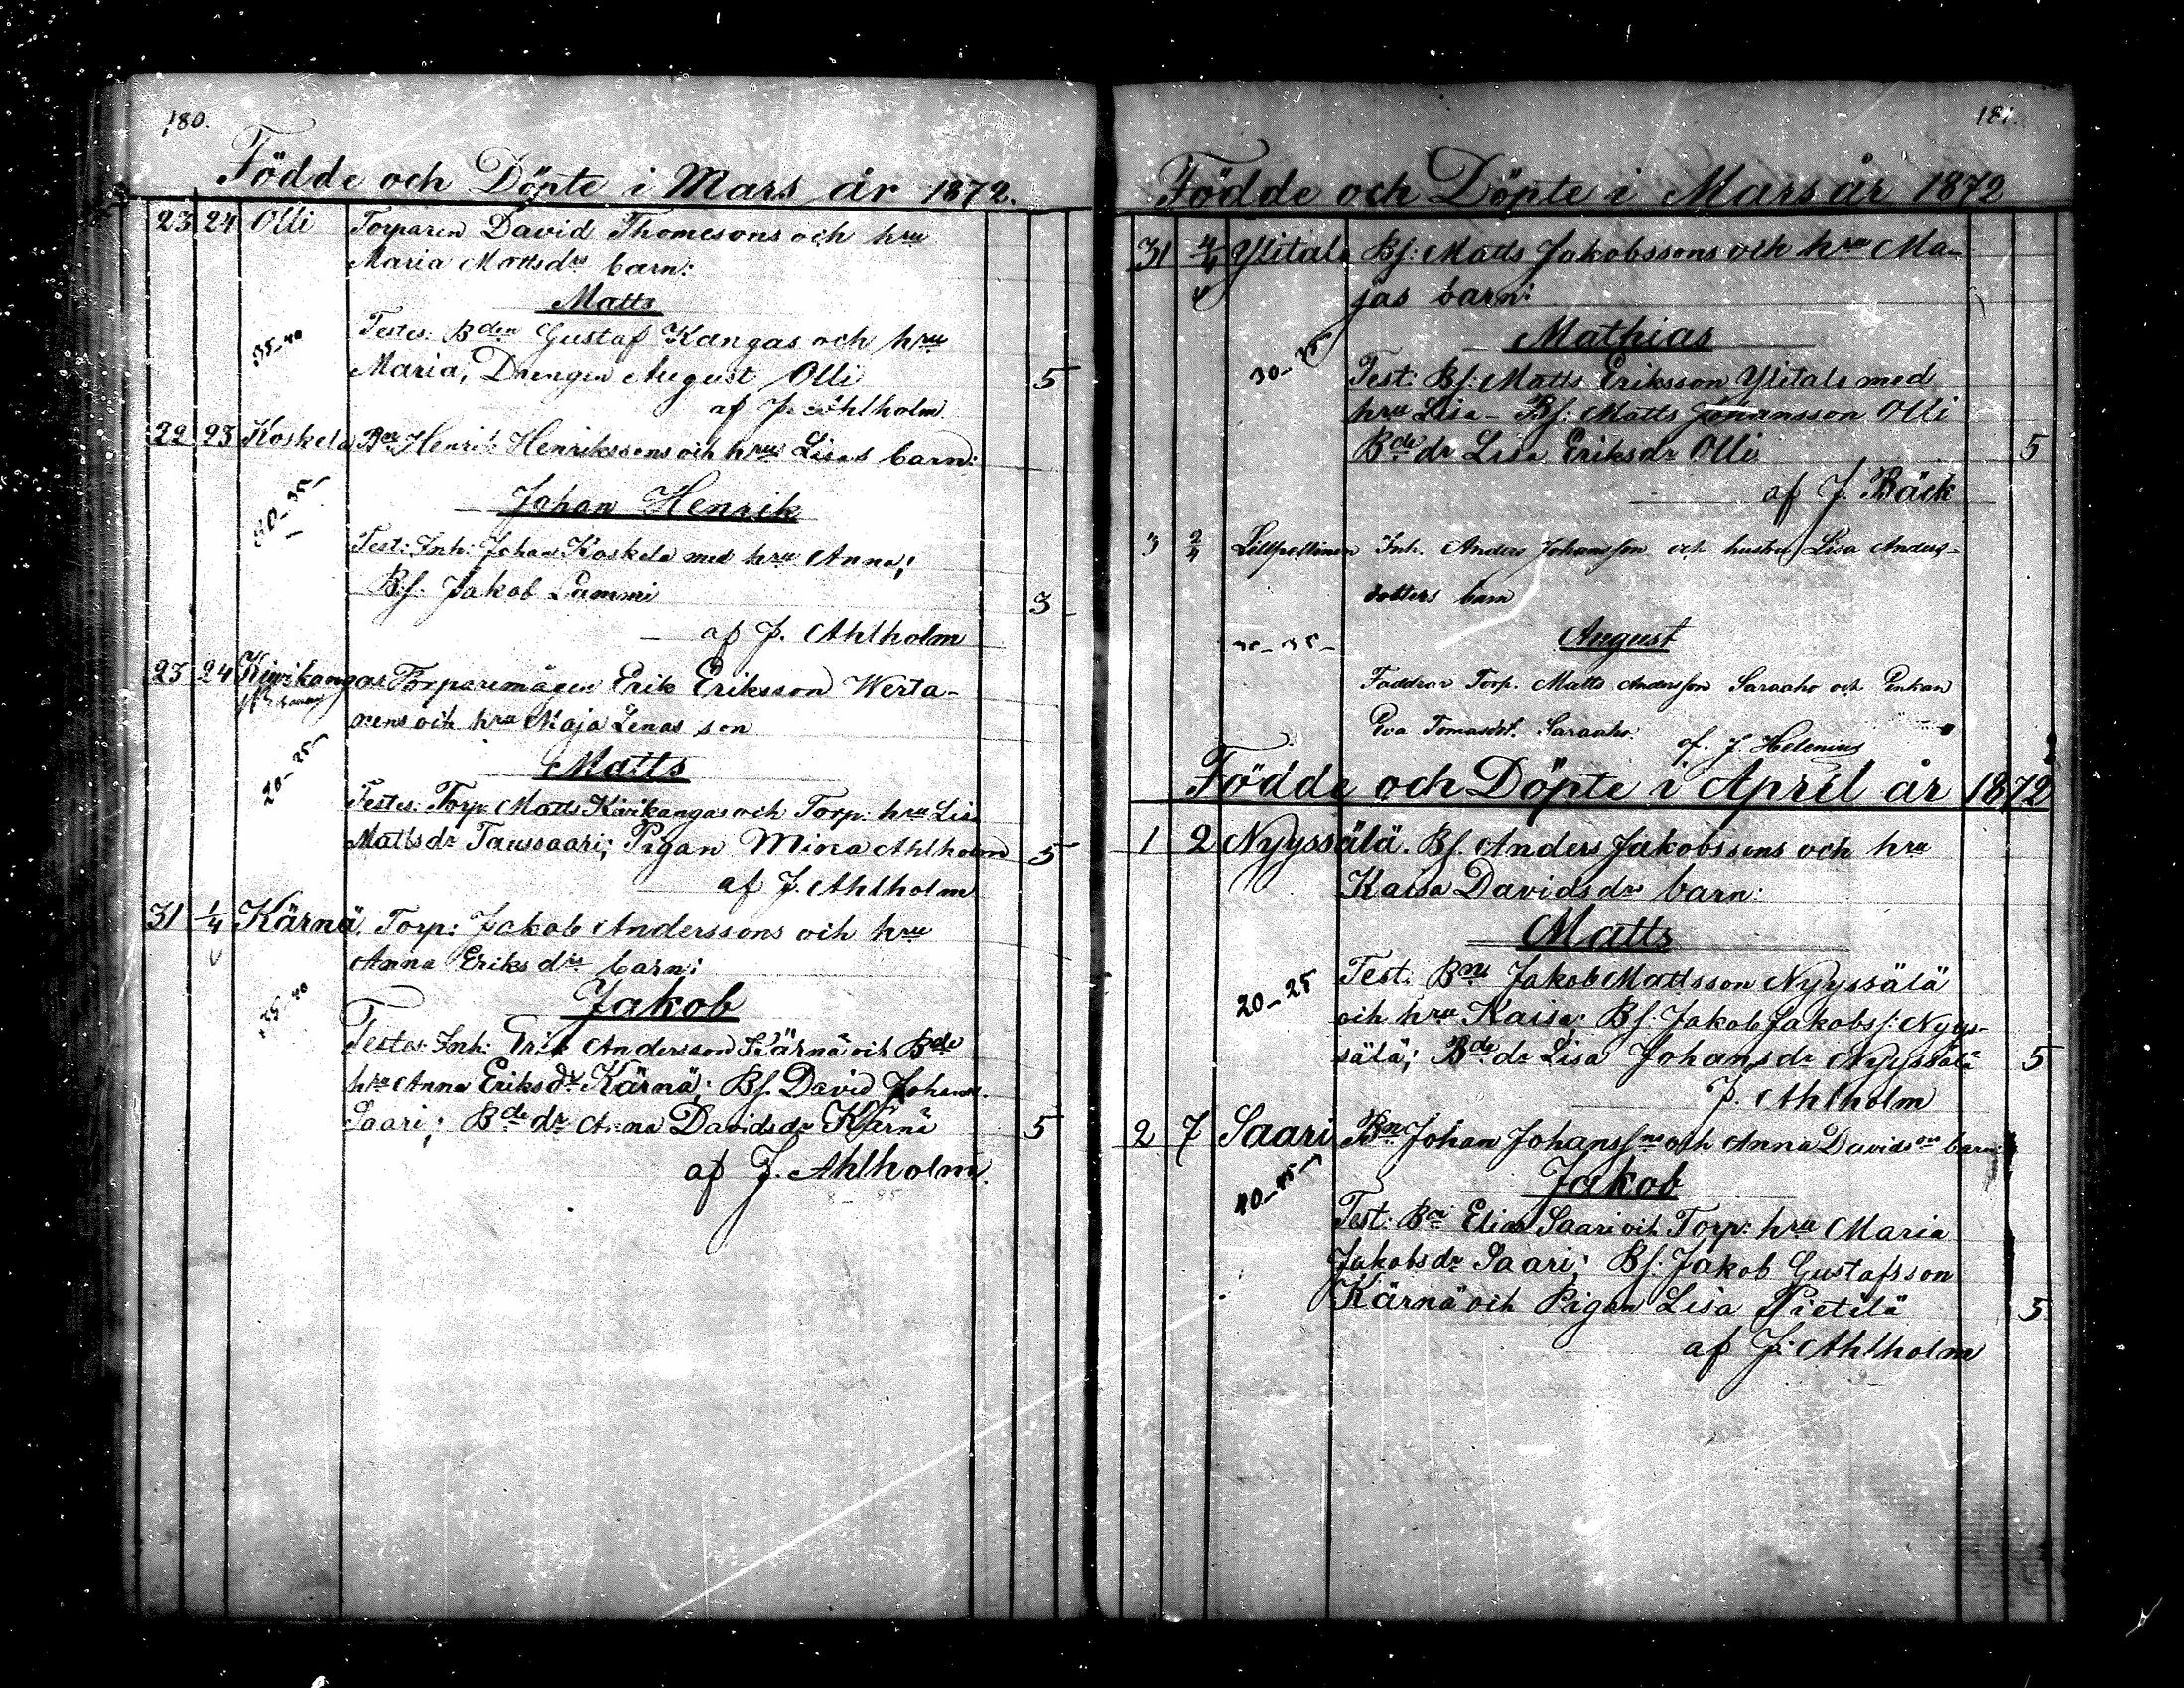 180.
Födde och Döpte i Mars år 1872.
23 24 Olli Torparen David Thomessons och hru
Maria Mattsdrs barn:
Matts
Testes: Bden Gustaf Kangas och hru
35-40 Maria, Drengen August Olli 5
af J. Ahlholm
22 23 Koskela Bns Henrik Henrikssons och hrus Lisas barn:
Johan Henrik
30-35
Test: Inh: Johan Koskela med hru Anna;
Bs. Jakob Lammi 3
af J. Ahlholm
23 24 Kivikangas Torparemågen Erik Eriksson Werta-
nens och hru Maja Lenas son
20-25 Matts
Testes: Torp. Matts Kivikangas och Torp: hru Lis
Mattsdr Taussaari; Pigan Mina Ahlholm 5
af J. Ahlholm
31 1/4 Kärnä. Torp: Jakob Anderssons och hru
Anna Eriksdrs barn:
Jakob
35-40
Testes: Inh: Erik Andersson Kärnä och Bde
hru Anna Eriksdr Kärnä; Bs. David Johans.
Saari; Bde dr Anna Davidsdr Kärnä 5
af J. Ahlholm.
181.
Födde och Döpte i Mars år 1872
31 4/4 Ylitalo Bs: Matts Jakobssons och hru Ma-
jas barn:
Mathias
30-35 Test: Bs: Matts Eriksson Ylitalo med
hru Lisa - Bs: Matts Johansson Olli
Bde dr Lisa Eriksdr Olli 5
af J. Bäck
3 2/4 Inh. Anders Johansson och hustru Lisa Anders-
dotters barn
30-35- August
Faddrar Torp. Matts Andersson Saraaho och Enkan
Eva Tomasdot. Saraaho.
af. J. Helenius
Födde och Döpte i April år 1872
1 2 Nyyssälä. Bs. Anders Jakobssons och hru
Kaisa Davidsdrs barn:
Matts
Test: Bns Jakob Mattsson Nyyssälä
20-25 och hru Kaisa; Bs: Jakob Jakobs: Nyys-
sälä; Bde dr Lisa Johansdr Nyyssälä 5
J. Ahlholm
2 7 Saari Bn Johan Johanssns och Anna Davidsdrs barn
Jakob
Test: Bn Elias Saari och Torp: hru Maria
Jakobsdr Saari; Bs: Jakob Gustafsson
Kärnä och Pigan Lisa Pietilä 5
af J. Ahlholm